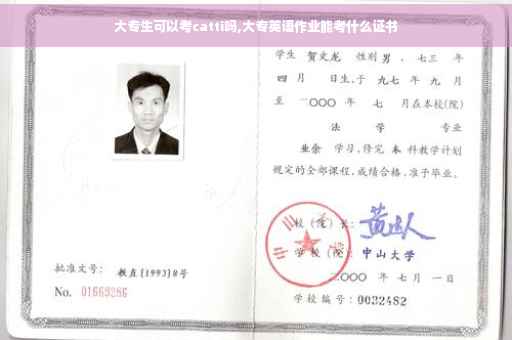 大专生可以考catti吗,大专英语作业能考什么证书
学生 贺文龙 性别 男 、七三 年
四 月 日生,于 九七 年 九 月
至 二〇〇〇 年 七 月在本校(院)
法 学 专业
业余 学习,修完 本 科教学计划
规定的全部课程,成绩合格,准予毕业。
校(院)长:
学 校(院): 中山大学
二〇〇〇 年 七 月 一 日
学校编号: 0032482
批准文号: 教直(1993)8号
No. 01669286